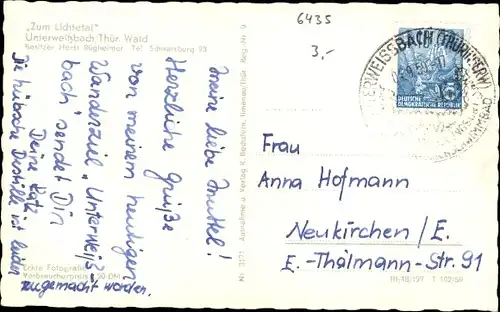 "Zum Lichtetal"
Unterweißbach Thür. Wald
Besitzer Horst Rügheimer Tel. Schwarzburg 93
6435
3,-
Meine liebe Muttel!
Herzliche Grüße
von meinem heutigen
Wanderziel „Unterweiß-
bach" sendet Din
Deine Kate
Die hübsche Dusthille ist leider
zugemacht worden.
Echte Fotografie
Verbraucherpreis 0,20 DM
Aufnahme u. Verlag K. Ilmenau/Thür. Reg.-Nr. 9
UNTERWEISSBACH (THÜRINGERW)
SCHWIMMBAD
DEUTSCHE
DEMOKRATISCHE REPUBLIK
Frau
Anna Hofmann
Neukirchen/E.
E.-Thälmann-Str. 91
III-18-197 T 102/59